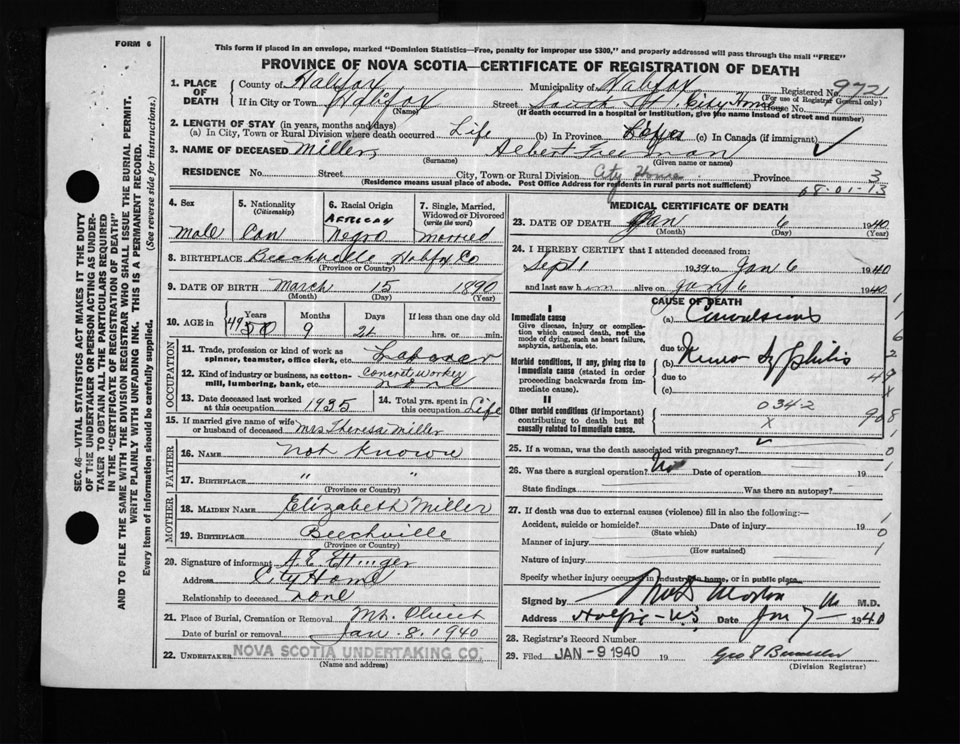 FORM 6
This form if placed in an envelope, marked "Dominion Statistics—Free, penalty for improper use $300," and properly addressed will pass through the mail "FREE"
PROVINCE OF NOVA SCOTIA—CERTIFICATE OF REGISTRATION OF DEATH
1. PLACE OF DEATH County of Halifax Municipality of Halifax Registered No. 9721
(For use of Registrar General only)
If in City or Town Halifax (Name) Street South St. City Home House No.
(If death occurred in a hospital or institution, give the name instead of street and number)
2. LENGTH OF STAY (in years, months and days)
(a) In City, Town or Rural Division where death occurred Life (b) In Province (c) In Canada (if immigrant) ✓
3. NAME OF DECEASED Miller, Albert Freeman
(Surname) (Given name or names)
RESIDENCE No. Street City, Town or Rural Division City Home Province 3
(Residence means usual place of abode. Post Office Address for residents in rural parts not sufficient)
68-01-13
4. Sex 5. Nationality (Citizenship) 6. Racial Origin 7. Single, Married, Widowed or Divorced (write the word)
African
Male Can Negro Married
8. BIRTHPLACE Beechville Halifax Co
(Province or Country)
9. DATE OF BIRTH March 15 1890
(Month) (Day) (Year)
10. AGE in Years Months Days If less than one day old
49 50 9 21 hrs. or min.
OCCUPATION
11. Trade, profession or kind of work as spinner, teamster, office clerk, etc. Laborer
12. Kind of industry or business, as cotton-mill, lumbering, bank, etc. Concrete Worker
none
13. Date deceased last worked at this occupation 1935 14. Total yrs. spent in this occupation Life
15. If married give name of wife or husband of deceased Mrs Theresa Miller
FATHER
16. NAME Not Known
17. BIRTHPLACE " "
(Province or Country)
MOTHER
18. MAIDEN NAME Elizabeth Miller
19. BIRTHPLACE Beechville
(Province or Country)
20. Signature of informant A. E. Ettinger
Address City Home
Relationship to deceased None
21. Place of Burial, Cremation or Removal Mt. Olivet
Date of burial or removal Jan. 8. 1940
22. UNDERTAKER NOVA SCOTIA UNDERTAKING CO.
(Name and address)
MEDICAL CERTIFICATE OF DEATH
23. DATE OF DEATH Jan 6 1940
(Month) (Day) (Year)
24. I HEREBY CERTIFY that I attended deceased from:
Sept 1 1939 to Jan 6 1940
and last saw him alive on Jan 6 1940
CAUSE OF DEATH
I
Immediate cause
Give disease, injury or complication which caused death, not the mode of dying, such as heart failure, asphyxia, asthenia, etc.
(a) Convulsions
due to
Morbid conditions, if any, giving rise to immediate cause (stated in order proceeding backwards from immediate cause).
(b) Neuro Syphilis
due to
(c)
II
Other morbid conditions (if important) contributing to death but not causally related to immediate cause.
034-2
x
908
25. If a woman, was the death associated with pregnancy?
26. Was there a surgical operation? No Date of operation 19
State findings Was there an autopsy?
27. If death was due to external causes (violence) fill in also the following:—
Accident, suicide or homicide? Date of injury 19
(State which)
Manner of injury
(How sustained)
Nature of injury
Specify whether injury occurred in industry, in home, or in public place.
Signed by Morton M.D.
Address Halifax N.S. Date Jan 7 1940
28. Registrar's Record Number
29. Filed JAN -9 1940 19
(Division Registrar)
SEC. 46—VITAL STATISTICS ACT MAKES IT THE DUTY
OF THE UNDERTAKER OR PERSON ACTING AS UNDERTAKER TO OBTAIN ALL THE PARTICULARS REQUIRED
IN THE "CERTIFICATE OF REGISTRATION OF DEATH"
AND TO FILE THE SAME WITH THE DIVISION REGISTRAR WHO SHALL ISSUE THE BURIAL PERMIT.
WRITE PLAINLY WITH UNFADING INK. THIS IS A PERMANENT RECORD.
Every item of information should be carefully supplied. (See reverse side for instructions).